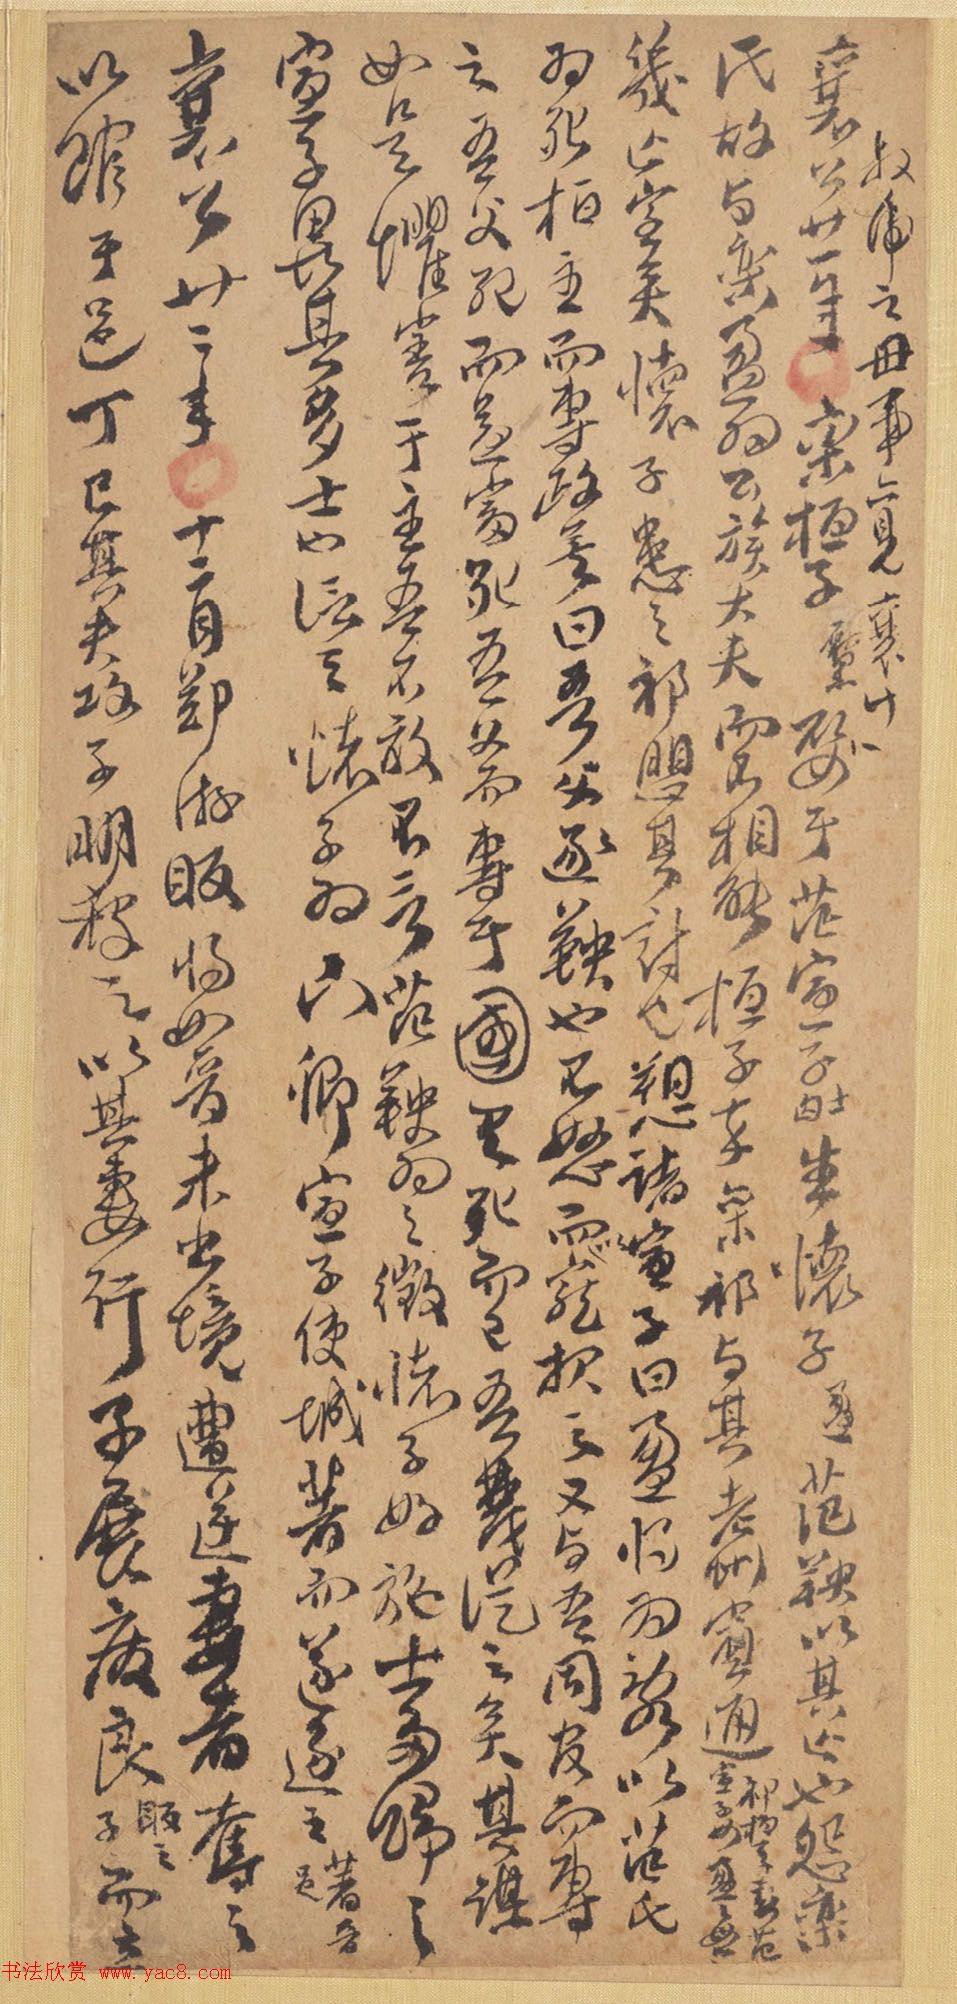 叔虎之母事亦見襄廿一
襄公廿一年 欒桓子黡娶于范宣子 生懷子盈范鞅以其亡也怨欒
氏故与欒盈为公族大夫而不相能桓子卒欒祁与其老州賓通
祁桓子妻范
宣子女盈母
幾亡室矣懷子患之祁懼其討也愬諸宣子曰盈将为乱以范氏
为死桓主而專政矣曰吾父逐鞅也不怒而以寵报之又与吾同官而專
之吾父死而益富死吾父而專于國有死而已吾蔑從之矣其謀
如是懼害于主吾不敢不言范鞅为之徵懷子好施士多歸之
宣子畏其多士也信之懷子为下卿宣子使城著而遂逐之
著晋
邑
襄公廿二年 十二月鄭游眅将如晋未出境遭逆妻者奪之
以館于邑丁巳其夫攻子明殺之以其妻行子展废良眅之子而立
书法欣赏 www.yac8.com